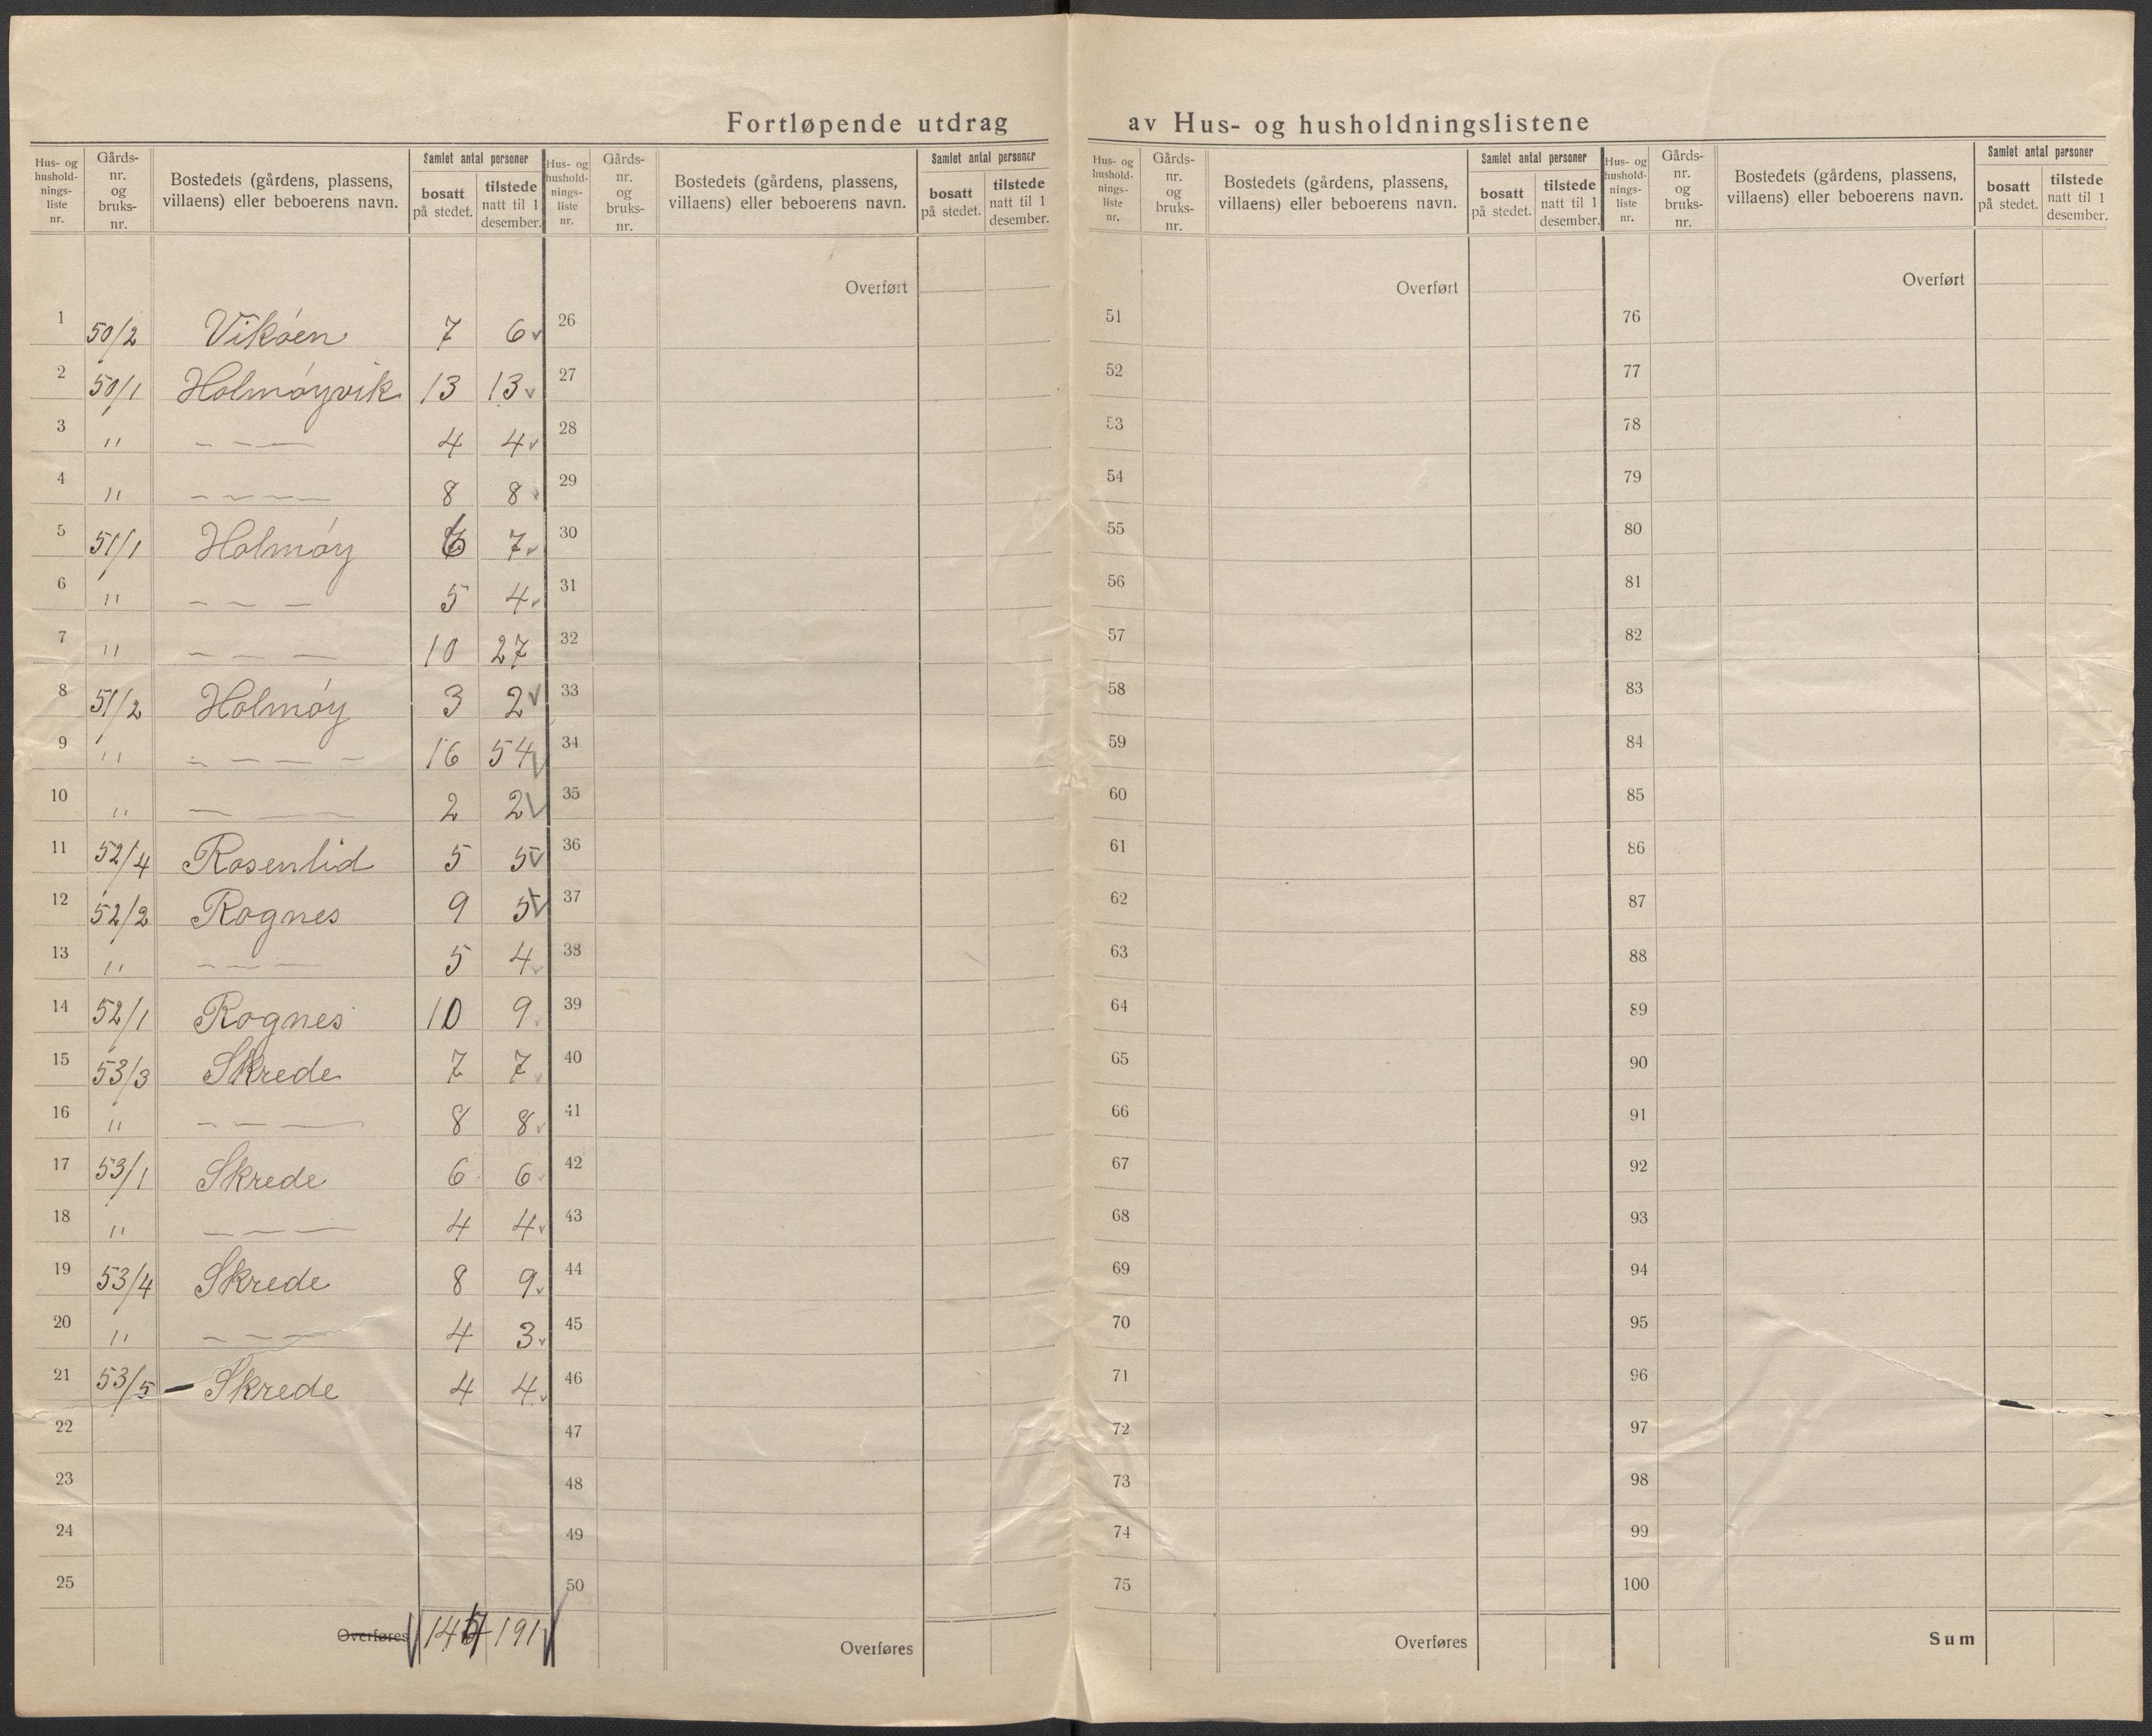 Fortløpende utdrag av Hus- og husholdningslistene
Hus- og hushold-nings-liste nr. Gårds-nr. og bruks-nr. Bostedets (gårdens, plassens, villaens) eller beboerens navn. Samlet antal personer bosatt på stedet. tilstede natt til 1 desember.
Hus- og hushold-nings-liste nr. Gårds-nr. og bruks-nr. Bostedets (gårdens, plassens, villaens) eller beboerens navn. Samlet antal personer bosatt på stedet. tilstede natt til 1 desember.
Hus- og hushold-nings-liste nr. Gårds-nr. og bruks-nr. Bostedets (gårdens, plassens, villaens) eller beboerens navn. Samlet antal personer bosatt på stedet. tilstede natt til 1 desember.
Hus- og hushold-nings-liste nr. Gårds-nr. og bruks-nr. Bostedets (gårdens, plassens, villaens) eller beboerens navn. Samlet antal personer bosatt på stedet. tilstede natt til 1 desember.
Overført Overført Overført
1 50/2 Vikøen 7 6 26 51 76
2 50/1 Holmøyvik 13 13 27 52 77
3 " — — — 4 4 28 53 78
4 " — — — — 8 8 29 54 79
5 51/1 Holmøy 6 7 30 55 80
6 " — — — 5 4 31 56 81
7 " — — — 10 27 32 57 82
8 51/2 Holmøy 3 2 33 58 83
9 " — — — — 16 54 34 59 84
10 " — — — 2 2 35 60 85
11 52/4 Rosenlid 5 5 36 61 86
12 52/2 Rognes 9 5 37 62 87
13 " — — — 5 4 38 63 88
14 52/1 Rognes 10 9 39 64 89
15 53/3 Skrede 7 7 40 65 90
16 " — — — 8 8 41 66 91
17 53/1 Skrede 6 6 42 67 92
18 " — — — 4 4 43 68 93
19 53/4 Skrede 8 9 44 69 94
20 " — — — 4 3 45 70 95
21 53/5 Skrede 4 4 46 71 96
22 47 72 97
23 48 73 98
24 49 74 99
25 50 75 100
Overføres 191 Overføres Overføres Sum